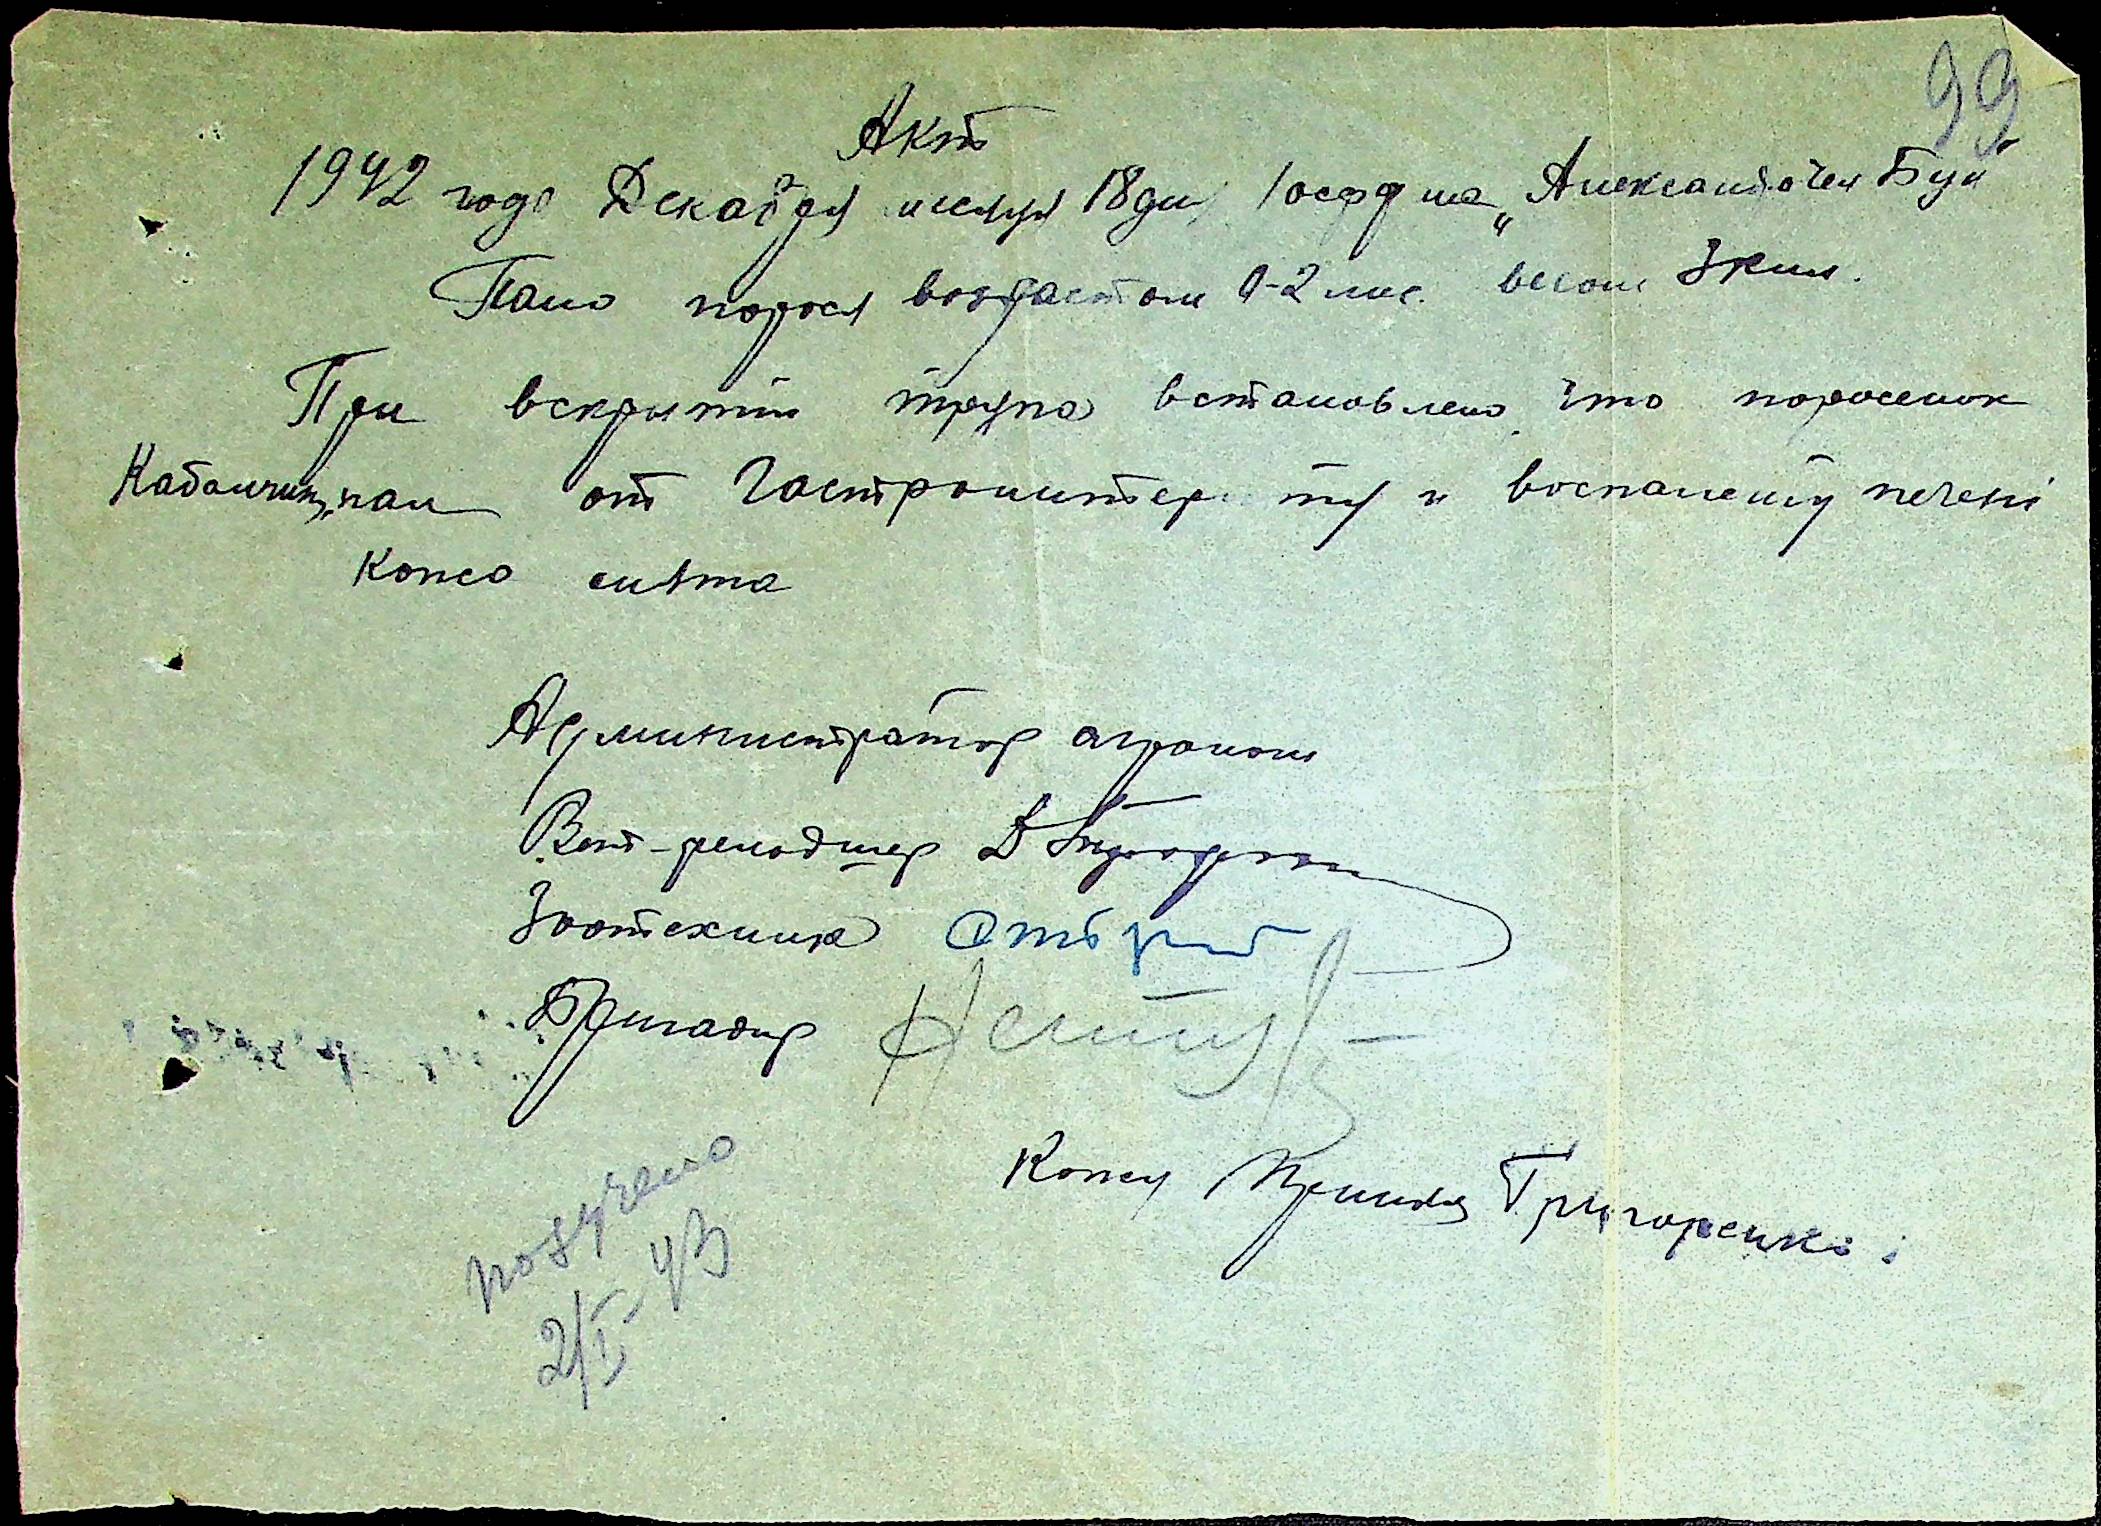 99
Акт
1942 года Декабря месяця 18 дня
Пало порося возрастом 0-2 мис. весом 3 кил.
При вскрытии трупа встановлено, что поросенок
Кабанчик, пал от Гастроинтериту и воспалению печені
Кожа снята
Администратор агроном
Вет-фельдшер
Зоотехник
Бригадир
Кожу Принял Григоренко
получено
2/I-43